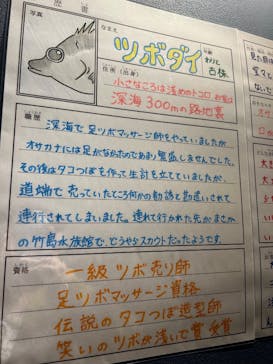 歴書
写真
なまえ
ツボダイ
年齢
わりと
古株
住所(出身)
小さなころは浅めのトコロ
深海300mの路地裏
職歴
深海で足ツボマッサージ師をやっていましたが
オサカナには足がなかったのであまり繁盛しませんでした。
その後はタコつぼを作って生計を立てていましたが、
道端で売っていたところ何かの勧誘と勘違いされて
連行されてしまいました。連れて行かれた先がまさか
の竹島水族館で、どうやらスカウトだったようです。
資格
一級ツボ売り師
足ツボマッサージ資格
伝説のタコつぼ造型師
笑いのツボが浅いで賞 受賞